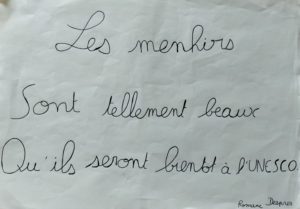 Les menhirs
Sont tellement beaux
Qu'ils seront bientôt à l'UNESCO.
Romane